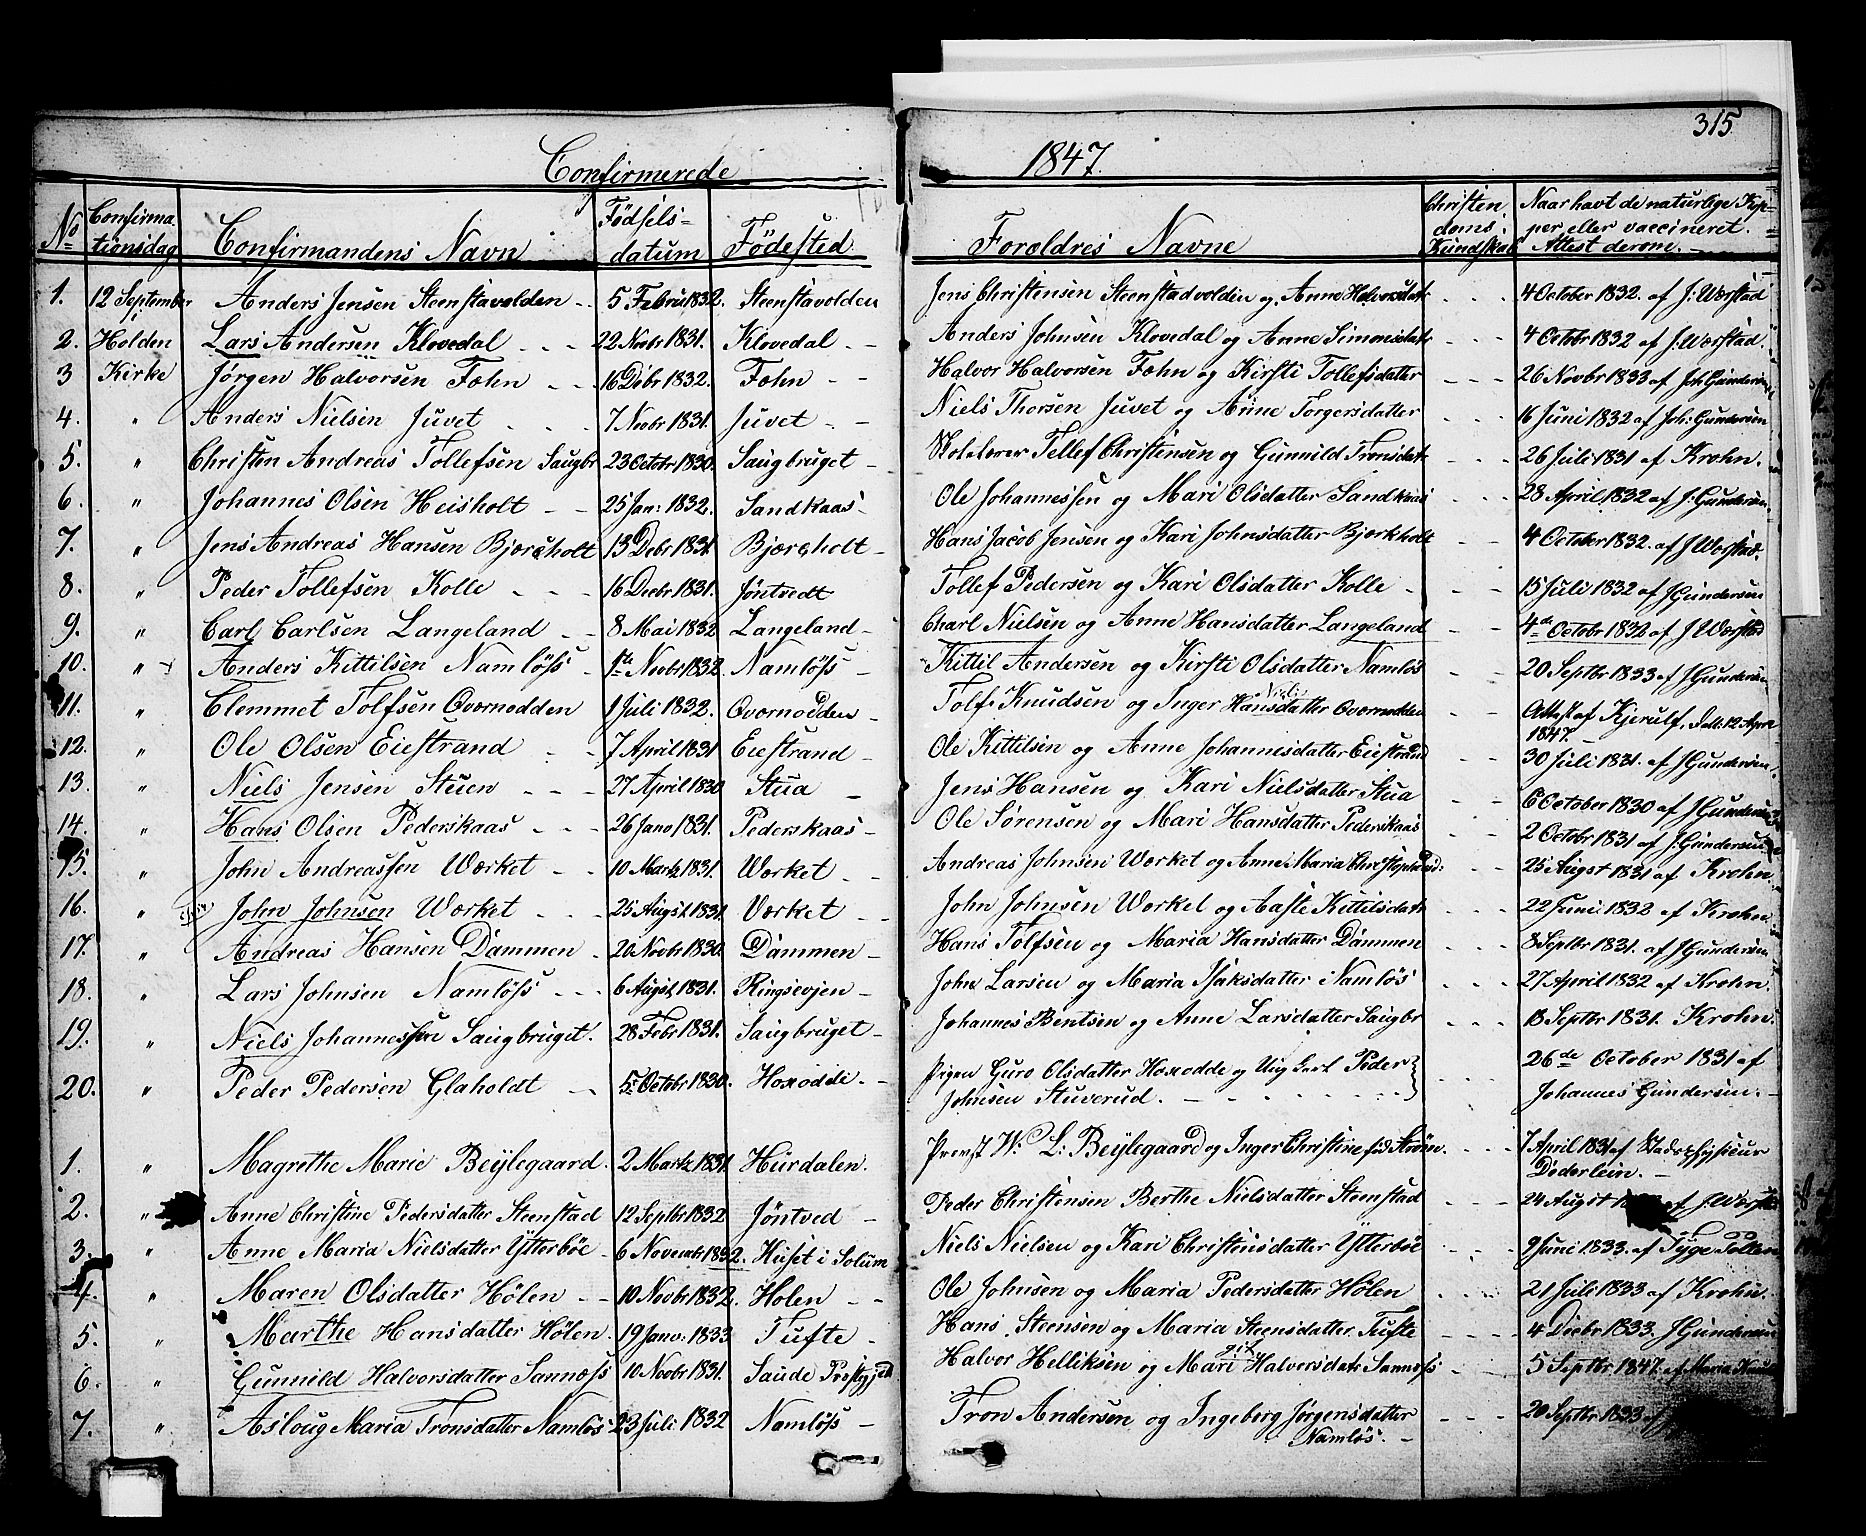 315
Confirmerede 1847.
No Confirmationsdag Confirmandens Navn Fødselsdatum Fødested Forældres Navne Christendoms Kundskab Naar havt de naturlige Kopper eller vaccineret. Attest derom.
1. 12 September Anders Jensen Steenstavolden 5 Febru 1832. Steenstavolden Jens Christensen Steenstadvolden og Anne Halvorsdatr 4 October 1832. af J: Worstad
2. i Holden Lars Andersen Klovedal 22 Novbr 1831. Klovedal Anders Johnsen Klovedal og Anne Simonsdatr 4 Octobr 1832 af J: Worstad.
3 Kirke Jørgen Halvorsen Fæhn 16 Debr 1832. Fæhn Halvor Halvorsen Fæhn og Kirsti Tollefsdatter 26 Novbr 1833 af Joh Gundersen
4. " Anders Nielsen Juvet 7 Novbr 1831. Juvet Niels Thorsen Juvet og Anne Torgersdatter 16 Juni 1832 af Joh: Gundersen
5. " Christen Andreas Tollefsen Saugbr 23 Octobr 1830. Saugbruget Skolelærer Tellef Christensen og Gunnild Tronsdatr 26 Juli 1831 af Krohn.
6. " Johannes Olsen Heisholt 25 Jan: 1832. Sandkaas Ole Johannessen og Mari Olsdatter Sandkaas 28 April 1832 af J: Gundersen
7. " Jens Andreas Hansen Bjørcholt 13 Debr 1831. Bjørcholt Hans Jacob Jensen og Kari Johnsdatter Bjørkholt 4 October 1832. af J Worstad.
8. " Peder Tollefsen Kolle 16 Decbr 1831. Jøntvedt Tollef Pedersen og Kari Olsdatter Kolle 15 Juli 1832 af J Gundersen
9. " Carl Carlsen Langeland 8 Mai 1832 Langeland Charl Nielsen og Anne Hansdatter Langeland 4de Octobr 1832 af J Worstad
10. " Anders Kittilsen Namløss 1te Novbr 1832. Namløss Kittil Andersen og Kirsti Olsdatter Namløs 20 Septbr 1833 af J Gundersen
11. " Clemmet Tolfsen Overnodden 1 Juli 1832. Overnodden Tolf Knudsen og Inger Hansdatter Overnodden Attest af Kjerulf, Datt: 12 April 1847.
12. " Ole Olsen Eiestrand 7 April 1831 Eiestrand Ole Kittilsen og Anne Johannisdatter Eiestrand 30 Juli 1831. af J Gundersen.
13. " Niels Jensen Stuen 27 April 1830 Stua Jens Hansen og Kari Nielsdatter Stua 6 October 1830 af J Gundersen
14. " Hans Olsen Pederskaas 26 Janv 1831. Pederskaas Ole Sørensen og Mari Hansdatter Pederskaas 2 Octobr 1831 af J: Gundersen
15. " John Andreassen Værket 10 Martz 1831. Værket Andreas Johnsen Værket og Anne Maria 25 August 1831 af Krohn.
16. " John Johnsen Værket 25 August 1831. Værket John Johnsen Værket og Aaste Kittilsdatr 22 Juni 1832 af Krohn
17. " Andreas Hansen Dammen 20 Novbr 1830. Dammen Hans Tolfsen og Maria Hansdatter Dammen 8 Septbr 1831. af J Gundersen
18. " Lars Johnsen Namløss 6 August 1831. Ringsevjen John Larsen og Maria Isaksdatter i Namløs 27 April 1832 af Krohn.
19. " Niels Johannessen Saugbruget. 28 Febr 1831. Saugbruget Johannes Bentsen og Anne Larsdatter Saugbr 18 Septbr 1831. Krohn.
20. " Peder Pedersen Glaholdt 5 Octobr 1830. Hoxodde Pigen Guro Olsdatter Hoxodde og Ung Karl Peder Johnsen Stuverud. 26de October 1831 af Johannes Gundersen.
1. " Magrethe Marie Beylegaard 2 Martz 1831. Hurdalen. Provst W: L: Beylegaard og Inger Christine født Strøm. 7 April 1831 af Stadsphysicus Dederlein.
2. " Anne Christine Pedersdatter Steenstad 12 Septbr 1832 Jøntved Peder Christensen Berthe Nielsdatter Steenstad 24 August af J. Worstad
3. " Anne Maria Nielsdatter Ytterbøe 6 Novembr 1832. Huset i Solum Niels Nielsen og Kari Christensdatter Ytterbøe 9 Juni 1833. af Tyge Tollen
4. " Maren Olsdatter Hølen 10 Novbr 1832. Holen Ole Johnsen og Maria Pedersdatter Hølen 21 Juli 1833 af Krohn.
5. " Marthe Hansdatter Hølen 19 Janv: 1833 Tufte Hans Steensen og Maria Steensdatter Tufte 4 Decbr 1833. J Gundersen
6. " Gunnild Halvorsdatter Sannæss 10 Novbr 1831. Saude Præstgjæld Halvor Helliksen og Mari Halvorsdatr Sannæss 5 Septbr 1847. af Maria
7. " Asloug Maria Tronsdatter Namløs 23 Juli 1832 Namløss Tron Andersen og Ingeberg Jørgensdatter Namløs. 20 Septbr 1833 af J